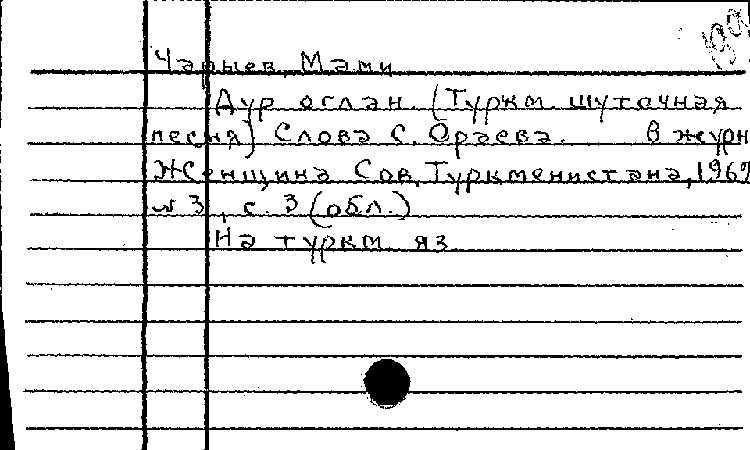 Чарыев, Мами
Дур оглан (Туркм. шуточная
песня) Слова С. Ораева. В журн
Женщина Сов. Туркменистана, 1969
№ 3, с. 3 (обл.)
На туркм яз